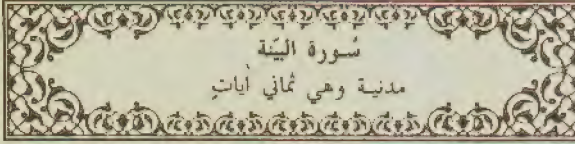 سُورة البيّنة
مدنية وهي ثماني أياتٍ